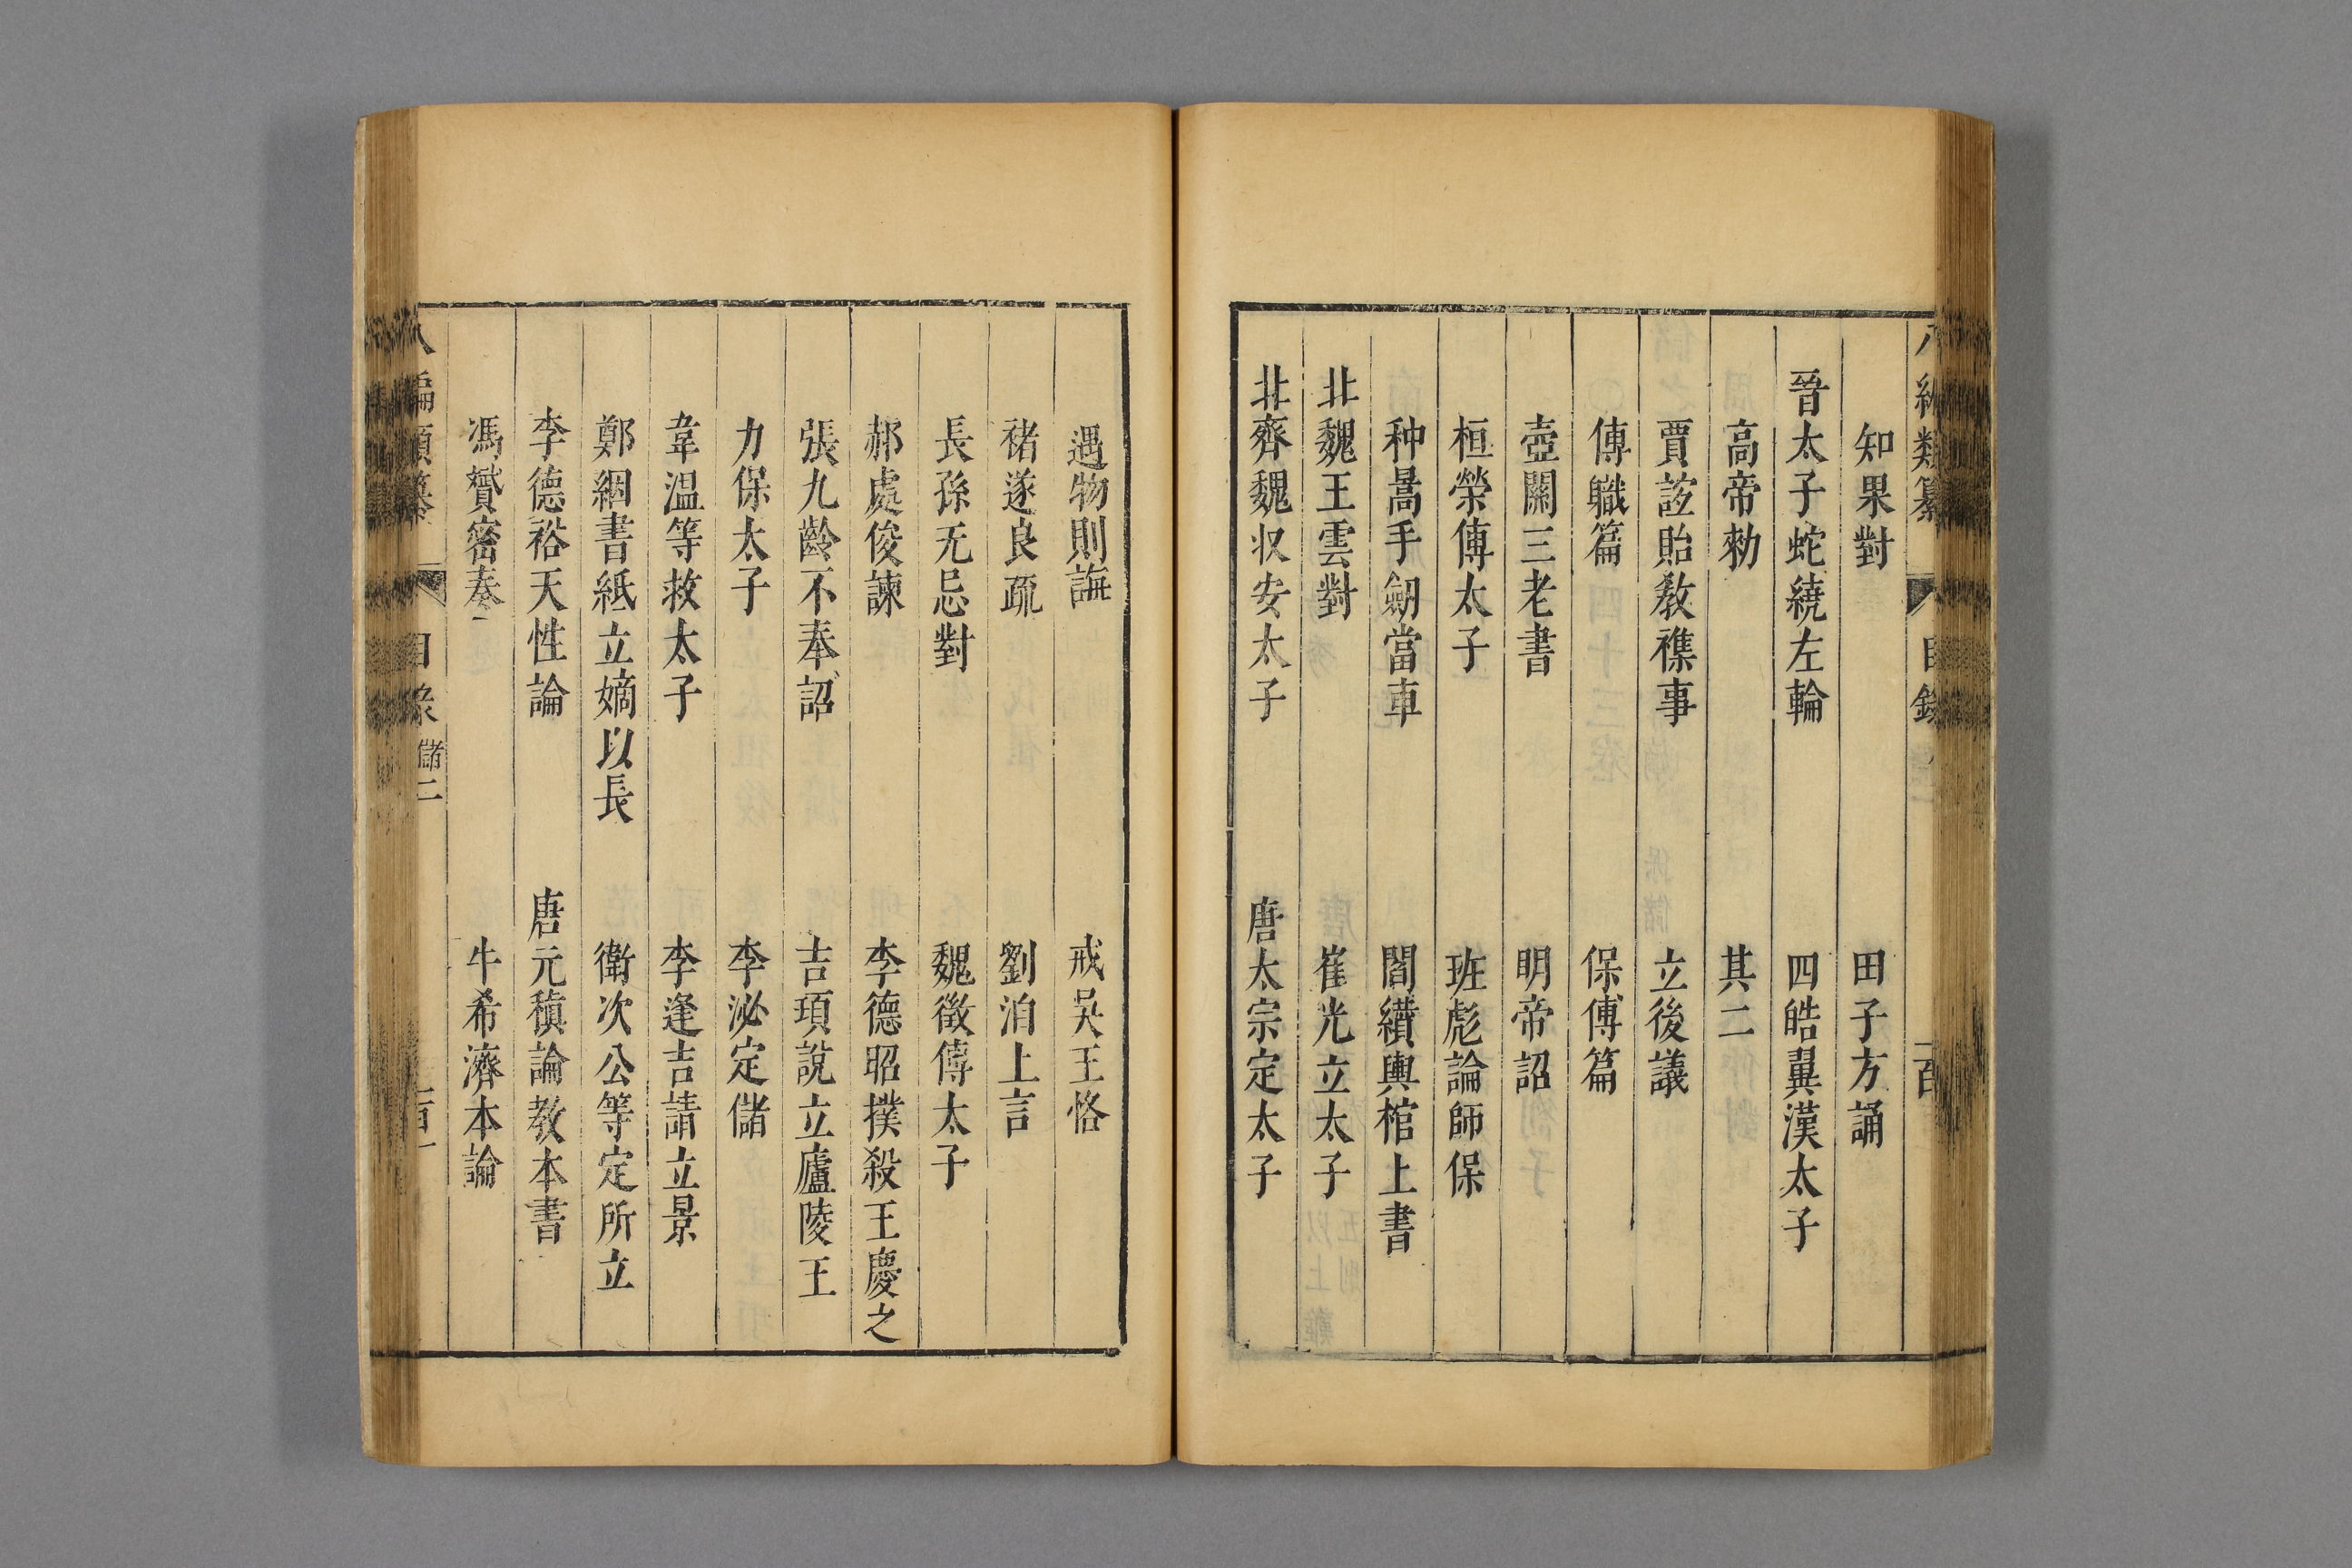 知果對　田子方誦
晉太子蛇繞左輪　四皓翼漢太子
高帝勑　其二
賈誼貽敎襍事　立後議
傅職篇　保傅篇
壺關三老書　明帝詔
桓榮傅太子　班彪論師保
种暠手劒當車　閻纉輿棺上書
北魏王雲對　崔光立太子
北齊魏收安太子　唐太宗定太子
遇物則誨　戒吳王恪
褚遂良疏　劉洎上言
長孫无忌對　魏徵傅太子
郝處俊諫　李德昭撲殺王慶之
張九齡不奉詔　吉頊說立廬陵王
力保太子　李泌定儲
韋溫等救太子　李逢吉請立景
鄭絪書紙立嫡以長　衛次公等定所立
李德裕天性論　唐元稹論敎本書
馮贇密奏　牛希濟本論
編類纂　目錄　儲二